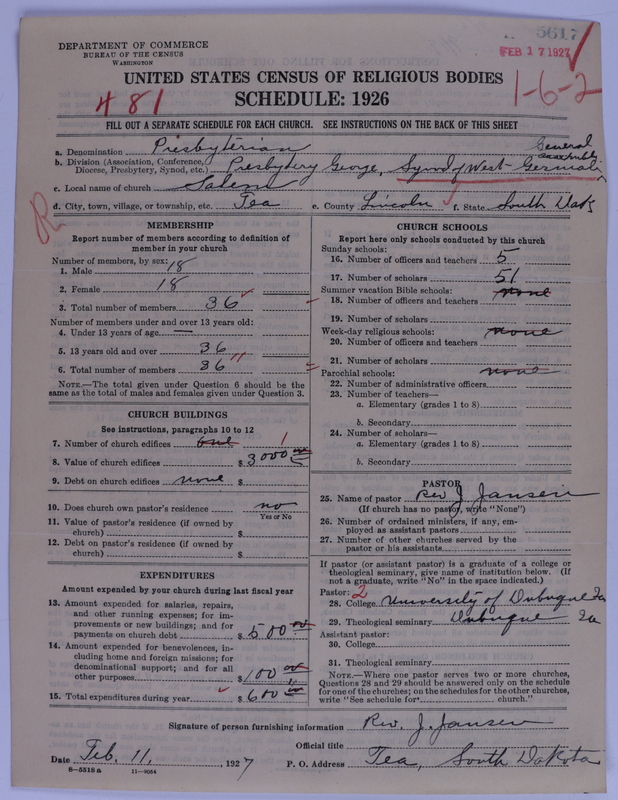 5617
FEB 17 1927
DEPARTMENT OF COMMERCE
BUREAU OF THE CENSUS
WASHINGTON
UNITED STATES CENSUS OF RELIGIOUS BODIES
SCHEDULE: 1926
481
1-6-2
FILL OUT A SEPARATE SCHEDULE FOR EACH CHURCH. SEE INSTRUCTIONS ON THE BACK OF THIS SHEET
a. Denomination Presbyterian
General Assembly
b. Division (Association, Conference, Diocese, Presbytery, Synod, etc.) Presbytery George, Synod of West German
c. Local name of church Salem
d. City, town, village, or township, etc. Tea e. County Lincoln f. State South Dak
R
MEMBERSHIP
Report number of members according to definition of
member in your church
Number of members, by sex:
1. Male 18
2. Female 18
3. Total number of members 36
Number of members under and over 13 years old:
4. Under 13 years of age —
5. 13 years old and over 36
6. Total number of members 36
NOTE.—The total given under Question 6 should be the
same as the total of males and females given under Question 3.
CHURCH BUILDINGS
See instructions, paragraphs 10 to 12
7. Number of church edifices one 1
8. Value of church edifices $ 3000 00
9. Debt on church edifices none $
10. Does church own pastor's residence no
Yes or No
11. Value of pastor's residence (if owned by
church) $
12. Debt on pastor's residence (if owned by
church) $
EXPENDITURES
Amount expended by your church during last fiscal year
13. Amount expended for salaries, repairs,
and other running expenses; for im-
provements or new buildings; and for
payments on church debt $ 500 00
14. Amount expended for benevolences, in-
cluding home and foreign missions; for
denominational support; and for all
other purposes $ 100 00
15. Total expenditures during year $ 600 00
CHURCH SCHOOLS
Report here only schools conducted by this church
Sunday schools:
16. Number of officers and teachers 5
17. Number of scholars 51
Summer vacation Bible schools: none
18. Number of officers and teachers
19. Number of scholars
Week-day religious schools: none
20. Number of officers and teachers
21. Number of scholars
Parochial schools: none
22. Number of administrative officers
23. Number of teachers—
a. Elementary (grades 1 to 8)
b. Secondary
24. Number of scholars—
a. Elementary (grades 1 to 8)
b. Secondary
PASTOR
25. Name of pastor Rev J. Jansen
(If church has no pastor, write "None")
26. Number of ordained ministers, if any, em-
ployed as assistant pastors
27. Number of other churches served by the
pastor or his assistants
If pastor (or assistant pastor) is a graduate of a college or
theological seminary, give name of institution below. (If
not a graduate, write "No" in the space indicated.)
Pastor: 2
28. College University of Dubuque Ia
29. Theological seminary Dubuque Ia
Assistant pastor:
30. College
31. Theological seminary
NOTE.—Where one pastor serves two or more churches,
Questions 28 and 29 should be answered only on the schedule
for one of the churches; on the schedules for the other churches,
write "See schedule for church."
Signature of person furnishing information Rev. J. Jansen
Official title
Date Feb. 11, 1927 P. O. Address Tea, South Dakota
8-5518 a 11-9054